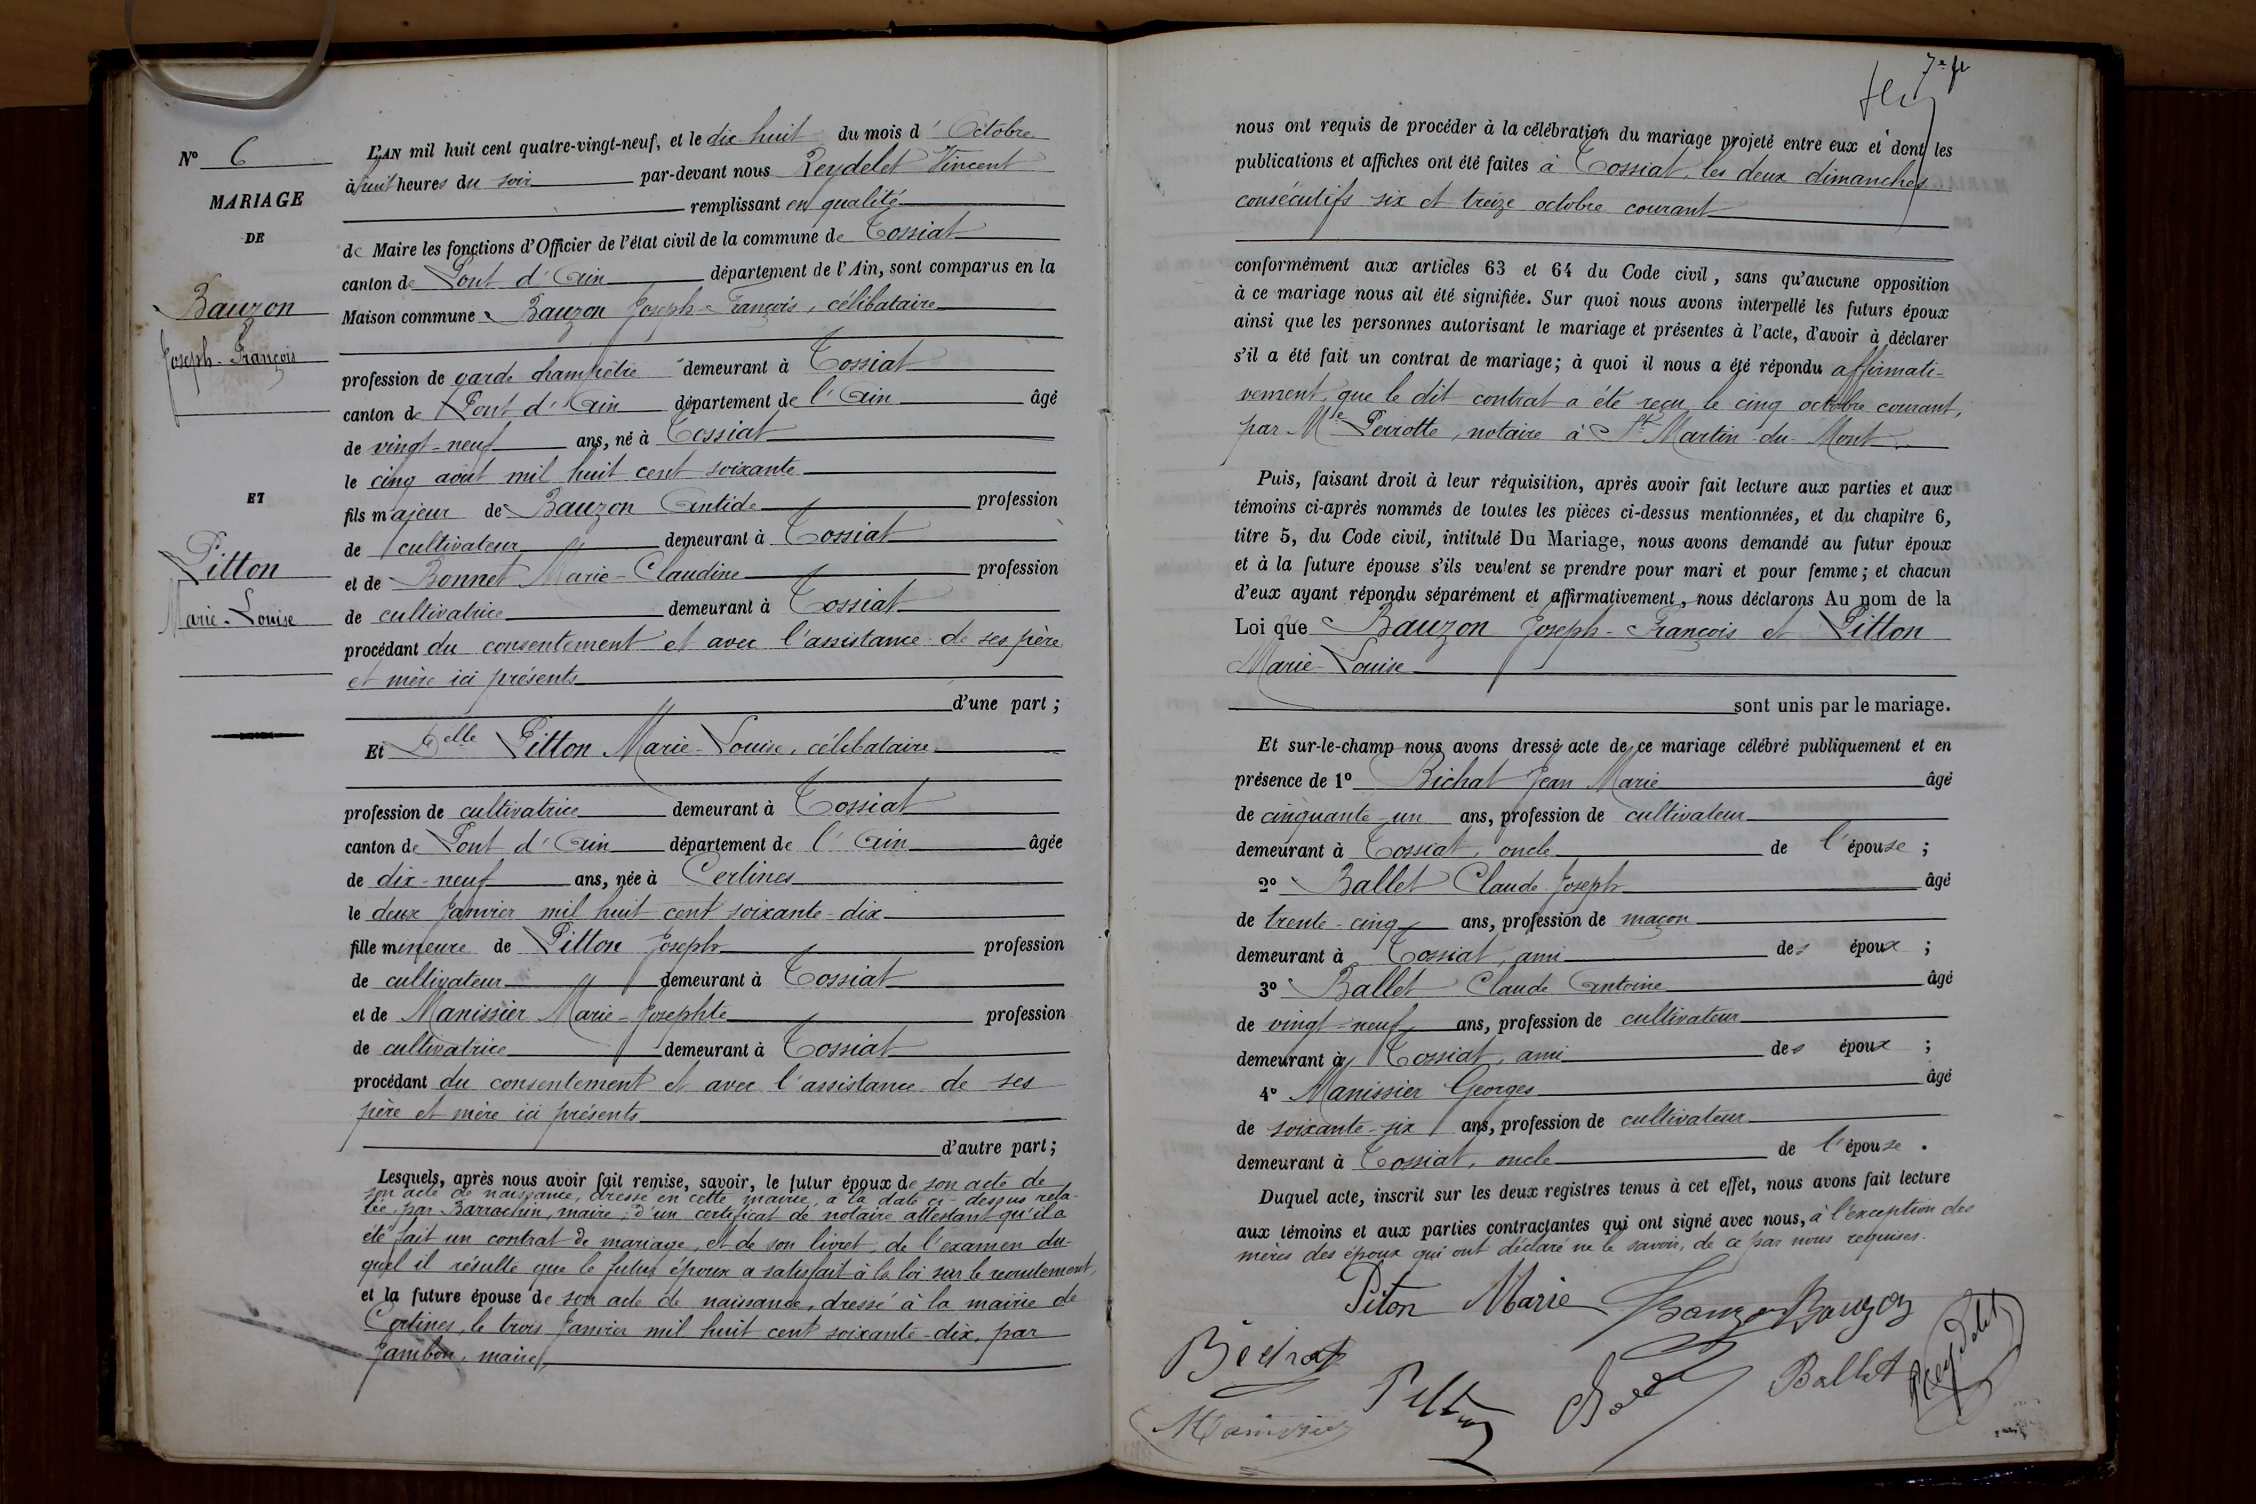 N° 6
MARIAGE
DE
Bauzon
Joseph-François
ET
Pitton
Marie-Louise
L'AN mil huit cent quatre-vingt-neuf, et le dix huit du mois d'Octobre
à huit heures du soir par-devant nous Reydelet Vincent
remplissant en qualité
de Maire les fonctions d'Officier de l'état civil de la commune de Tossiat
canton de Pont d'Ain département de l'Ain, sont comparus en la
Maison commune Bauzon Joseph-François, célibataire
profession de garde champêtre demeurant à Tossiat
canton de Pont d'Ain département de l'Ain âgé
de vingt-neuf ans, né à Tossiat
le cinq août mil huit cent soixante
fils majeur de Bauzon Antide profession
de cultivateur demeurant à Tossiat
et de Bonnet Marie-Claudine profession
de cultivatrice demeurant à Tossiat
procédant du consentement et avec l'assistance de ses père
et mère ici présents
d'une part ;
Et Delle Pitton Marie-Louise, célibataire
profession de cultivatrice demeurant à Tossiat
canton de Pont d'Ain département de l'Ain âgée
de dix-neuf ans, née à Certines
le deux Janvier mil huit cent soixante-dix
fille mineure de Pitton Joseph profession
de cultivateur demeurant à Tossiat
et de Manissier Marie-Josephte profession
de cultivatrice demeurant à Tossiat
procédant du consentement et avec l'assistance de ses
père et mère ici présents
d'autre part ;
Lesquels, après nous avoir fait remise, savoir, le futur époux de son acte de
son acte de naissance, dressé en cette mairie, à la date ci-dessus rela-
tée, par Barrachin, maire ; d'un certificat de notaire attestant qu'il a
été fait un contrat de mariage, et de son livret, de l'examen du-
quel il résulte que le futur époux a satisfait à la loi sur le recrutement,
et la future épouse de son acte de naissance, dressé à la mairie de
Certines, le trois Janvier mil huit cent soixante-dix, par
Jambon, maire
7e ft
nous ont requis de procéder à la célébration du mariage projeté entre eux et dont les
publications et affiches ont été faites à Tossiat, les deux dimanches
consécutifs six et treize octobre courant
conformément aux articles 63 et 64 du Code civil, sans qu'aucune opposition
à ce mariage nous ait été signifiée. Sur quoi nous avons interpellé les futurs époux
ainsi que les personnes autorisant le mariage et présentes à l'acte, d'avoir à déclarer
s'il a été fait un contrat de mariage ; à quoi il nous a été répondu affirmati-
vement, que le dit contrat a été reçu le cinq octobre courant,
par Me Perrotte, notaire à St Martin-du-Mont.
Puis, faisant droit à leur réquisition, après avoir fait lecture aux parties et aux
témoins ci-après nommés de toutes les pièces ci-dessus mentionnées, et du chapitre 6,
titre 5, du Code civil, intitulé Du Mariage, nous avons demandé au futur époux
et à la future épouse s'ils veulent se prendre pour mari et pour femme ; et chacun
d'eux ayant répondu séparément et affirmativement, nous déclarons Au nom de la
Loi que Bauzon Joseph-François et Pitton
Marie-Louise
sont unis par le mariage.
Et sur-le-champ nous avons dressé acte de ce mariage célébré publiquement et en
présence de 1° Bichat Jean Marie âgé
de cinquante-un ans, profession de cultivateur
demeurant à Tossiat, oncle de l'épouse ;
2° Ballet Claude Joseph âgé
de trente-cinq ans, profession de maçon
demeurant à Tossiat, ami des époux ;
3° Ballet Claude Antoine âgé
de vingt-neuf ans, profession de cultivateur
demeurant à Tossiat, ami des époux ;
4° Manissier Georges âgé
de soixante-six ans, profession de cultivateur
demeurant à Tossiat, oncle de l'épouse.
Duquel acte, inscrit sur les deux registres tenus à cet effet, nous avons fait lecture
aux témoins et aux parties contractantes qui ont signé avec nous, à l'exception des
mères des époux qui ont déclaré ne le savoir, de ce par nous requises.
Piton Marie Bauzon Bauzon
Bichat Ballet Reydelet
Manissier